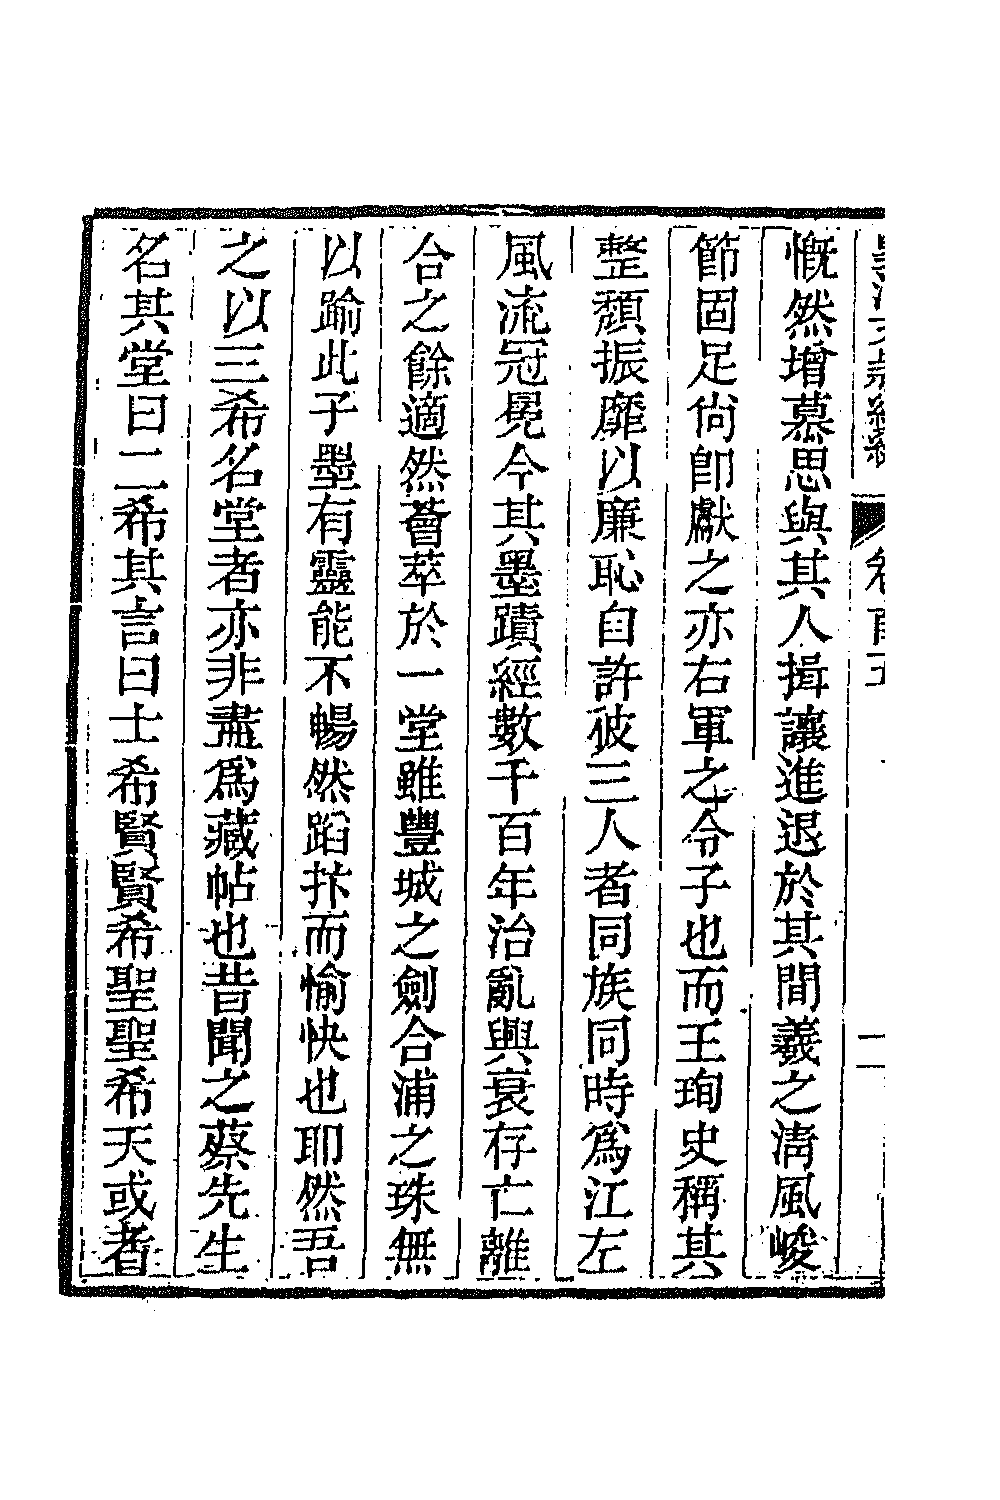 慨然增慕思與其人揖讓進退於其間羲之淸風峻
節固足尙卽獻之亦右軍之令子也而王珣史稱其
整頹振靡以廉恥自許彼三人者同族同時爲江左
風流冠冕今其墨蹟經數千百年治亂興衰存亡離
合之餘適然薈萃於一堂雖豐城之劍合浦之珠無
以踰此子墨有靈能不暢然蹈抃而愉快也耶然吾
之以三希名堂者亦非盡爲藏帖也昔聞之蔡先生
名其堂曰二希其言曰士希賢賢希聖聖希天或者